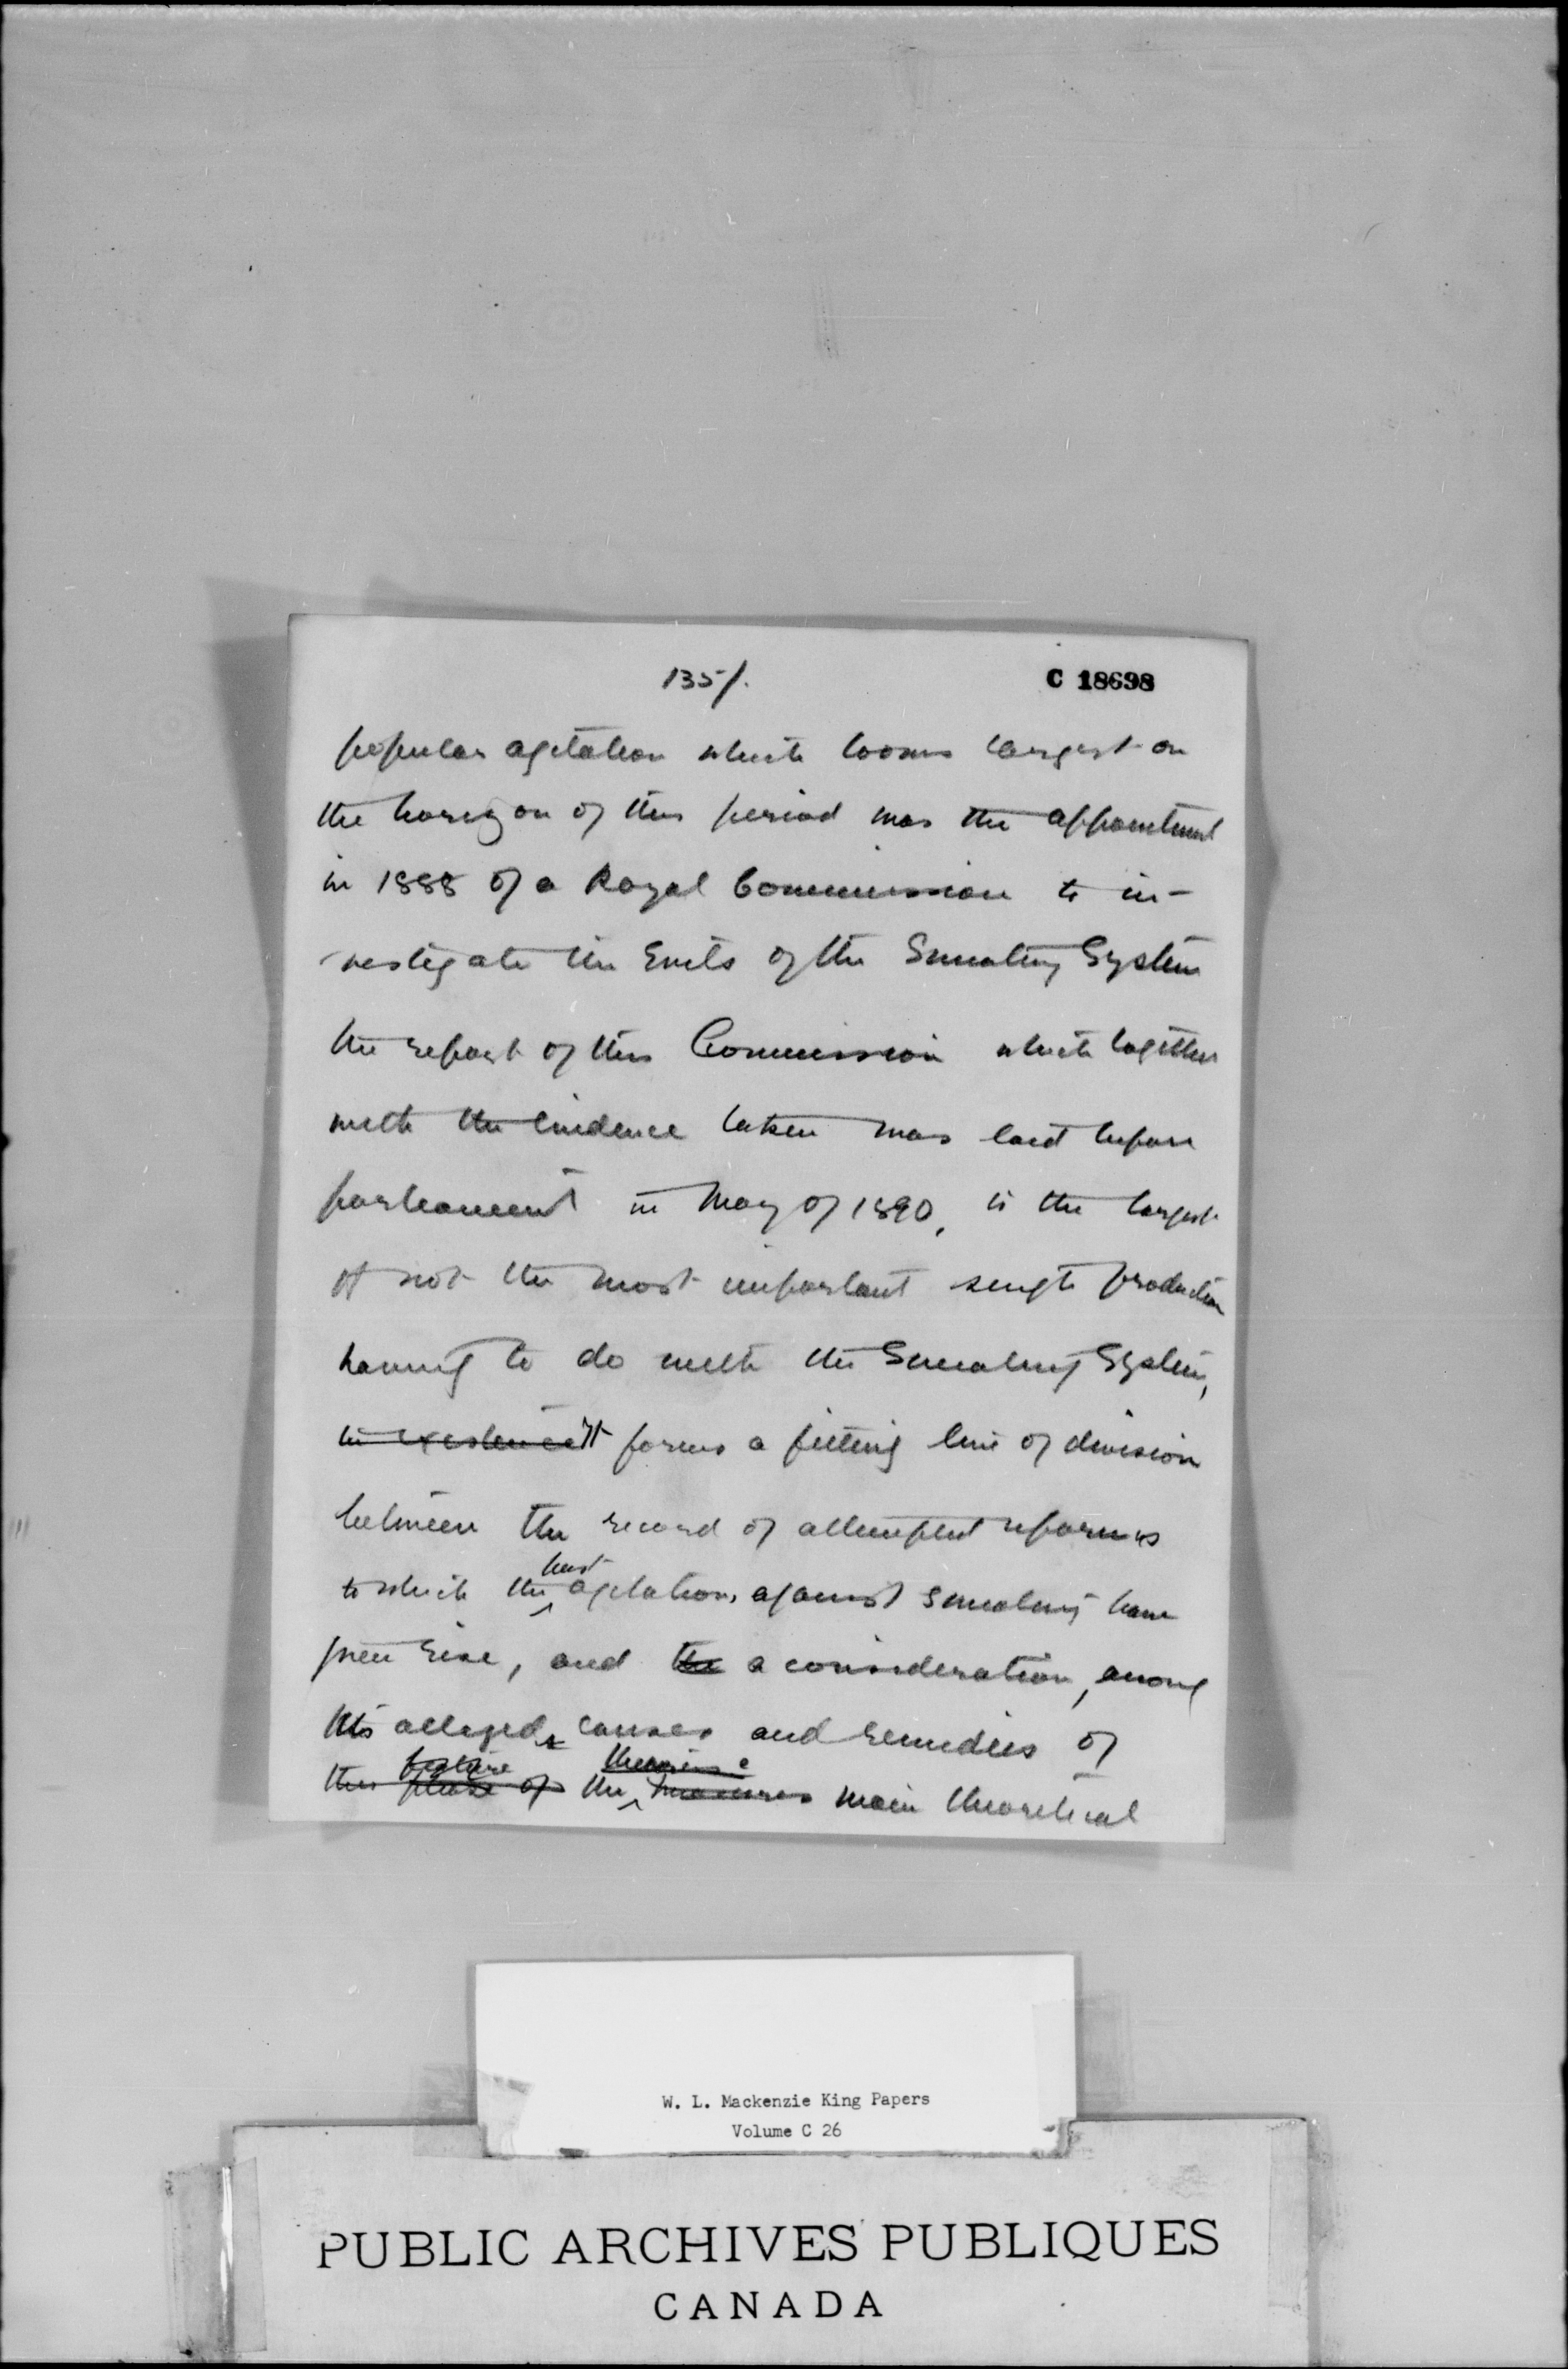 135/.
C 18698
popular agitation which looms largest on
the horizon of this period was the appointment
in 1888 of a Royal Commission to in-
vestigate the Evils of the Sweating System
the report of this Commission which together
with the Evidence taken was laid before
parliament in May of 1890, is the largest
if not the most important single production
having to do with the Sweating System,
in existence It forms a fitting line of division
between the record of attempted reforms
to which the past agitations against sweating have
given rise, and the a consideration, among
its alleged causes and remedies of
this feature phase of the measures main theoretical
W. L. Mackenzie King Papers
Volume C 26
PUBLIC ARCHIVES PUBLIQUES
CANADA